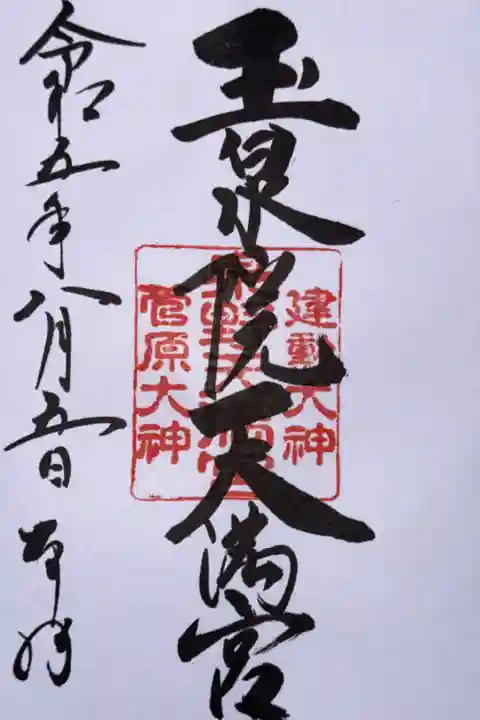 玉泉院天満宮
建勲大神
菅原大神
令和五年八月五日
奉拝